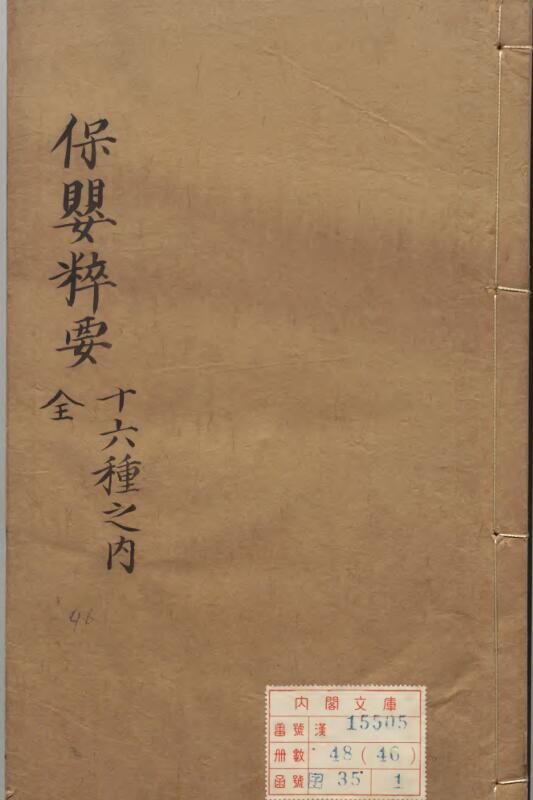 保嬰粹要
十六種之内
全
46
内閣文庫
番號 漢 15505
冊數 48(46)
函號 35 1